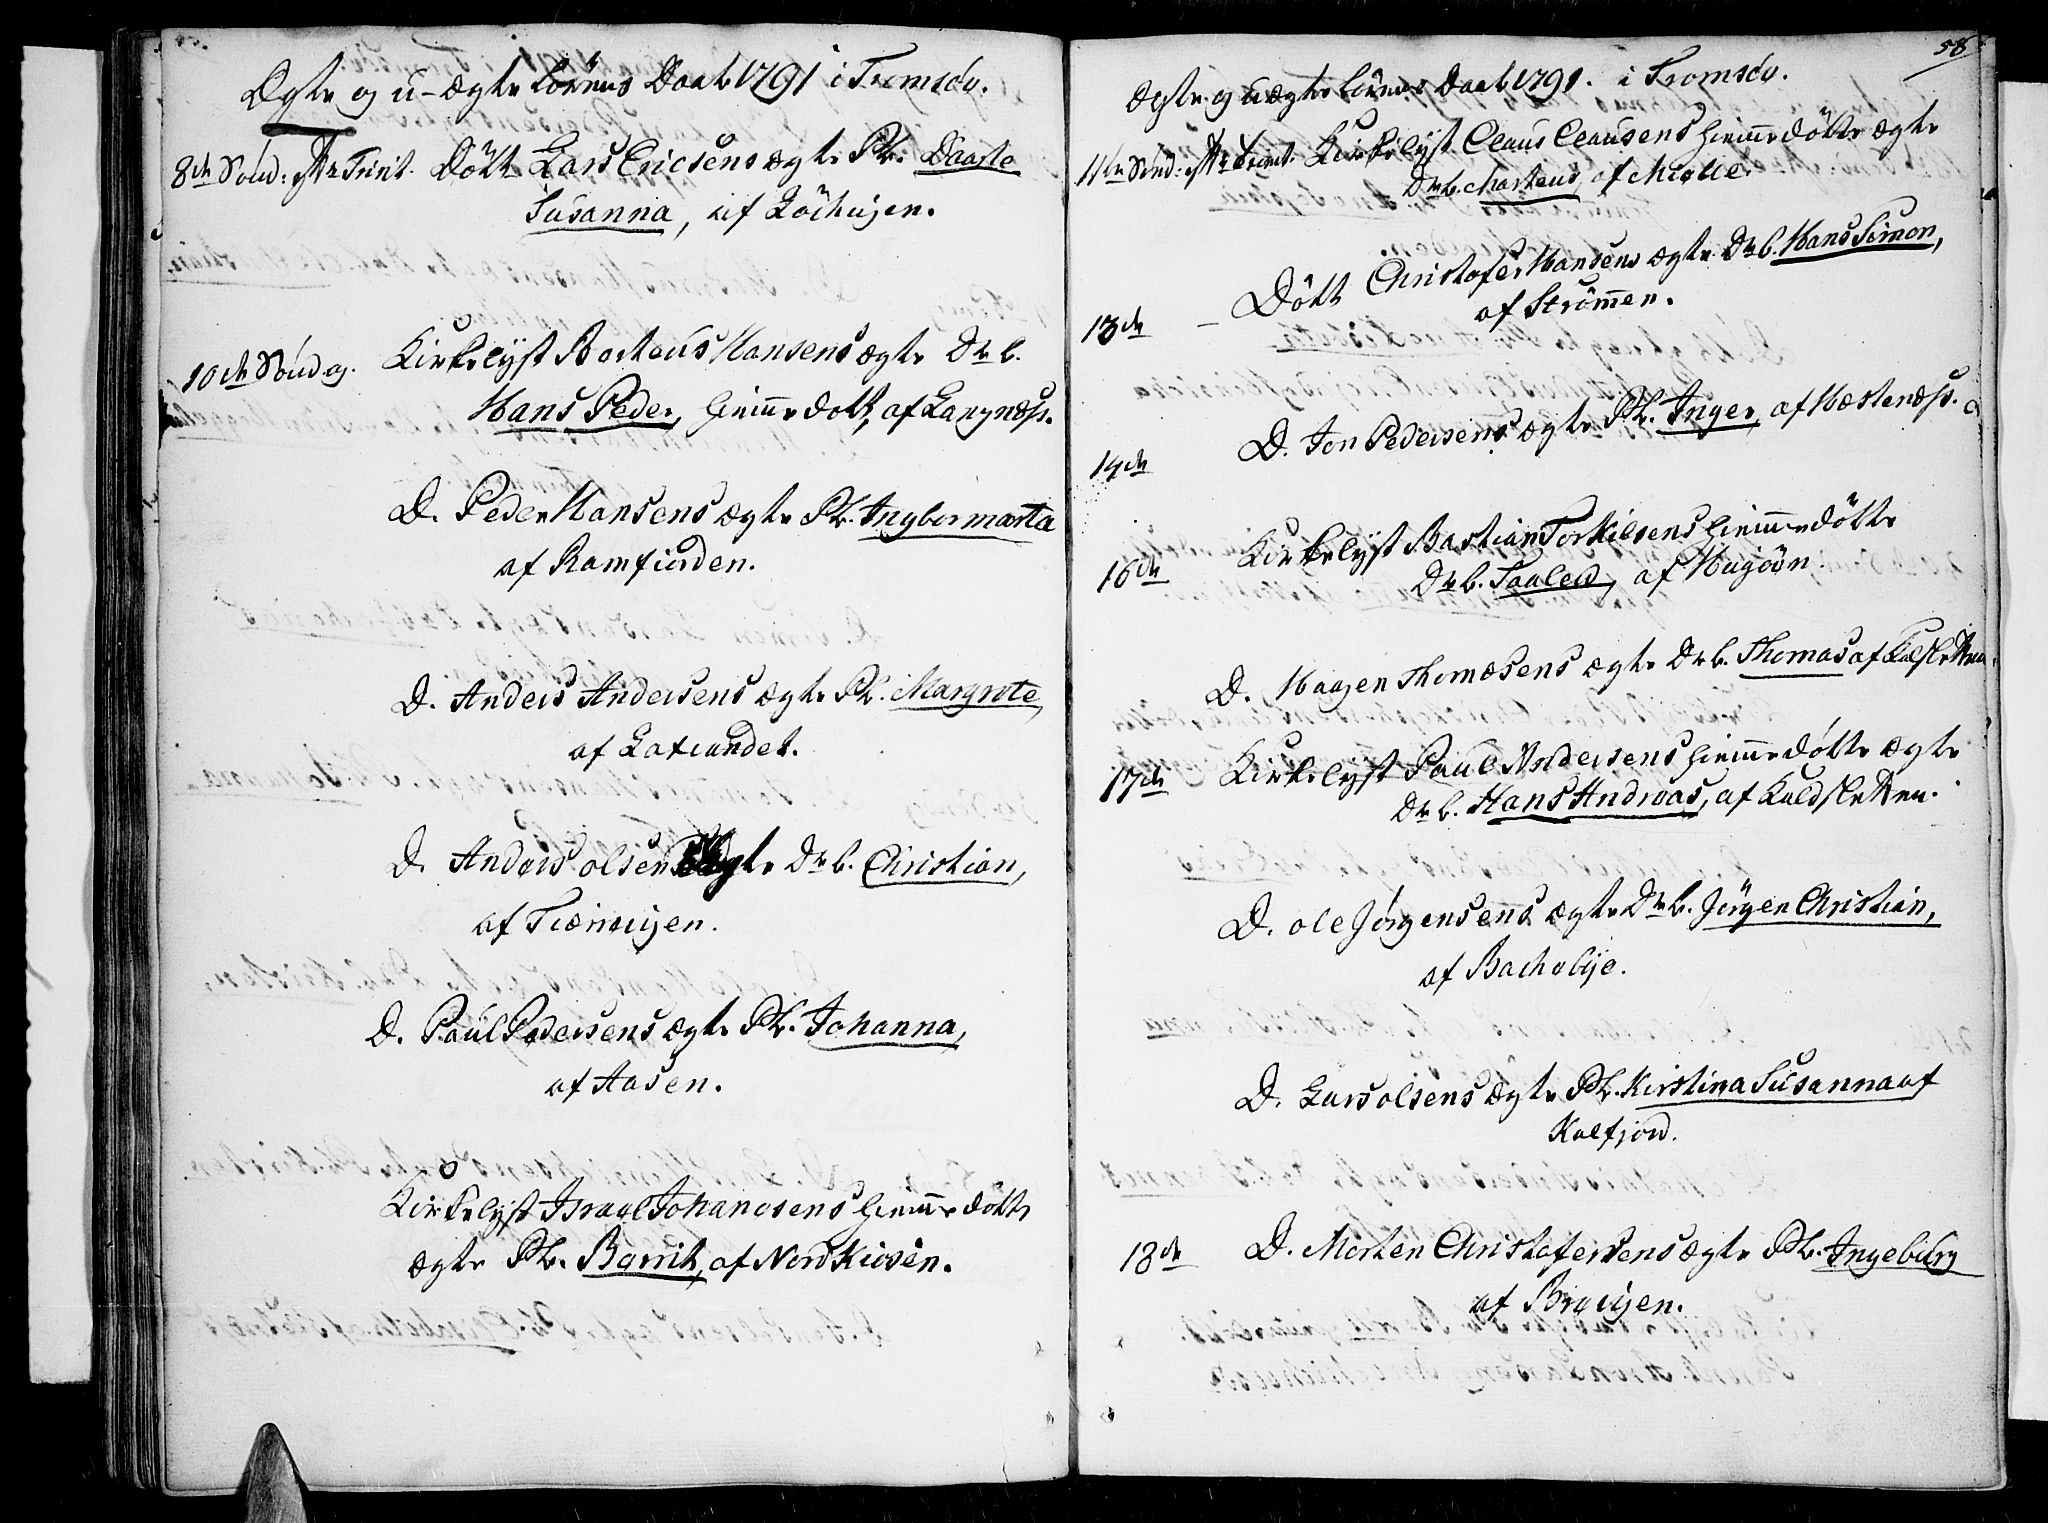 Ægte og u-ægte börns Daab 1791 i Tromsöe.
8de Sönd: efter Trinit. Döbt Lars Ericsens ægte Pb. Daarte
Susanna, af
10de Söndag. Kirkelyst Barteus Hansens ægte Drb.
Hans Peder, hiemmedobt, af Langnæss.
D. Peder Hansens ægte Pb. Ingbormarta
af Ramfiorden.
D. Anders Andersens ægte Pb. Margrete
af Laxundet.
D. Anders olsens ægte Drb. Christian,
af
D. Paul Pedersens ægte Pb. Johanna,
af Aasen.
Kirkelyst Israel Johanesens hiemmedöbte
ægte Pb. Barrit, af Nordkiosen.
58
Ægte og uægte börns Daab 1791. i Tromsöe.
11te Sönd: efter Trinit. Kirkelyst Claus Clausens hiemmedöbte ægte
Drb. Martens, af Mielle.
13de
Döbt Christofer Hansens ægte Drb. Hans Simon,
af Strömmen.
14de
D. Jon Pedersens ægte Pb. Inger, af Hæstenæss.
16de
Kirkelyst Bastian Torkilsens hiemmedöbte
Drb. Paules, af
D. Haagen Thomæsens ægte Drb. Thomas af Kalsletten.
17de Kirkelyst Paul Andersens hiemmedöbte ægte
Drb. Hans Andreas, af Kaldsletten.
D. ole Jörgensens ægte Drb. Jörgen Christian,
af Bachebye.
D. Lars olsens ægte Pb. Kirstina Susanna af
Kalfjord.
18de D. Morten Christofersens ægte Pb. Ingeburg
af